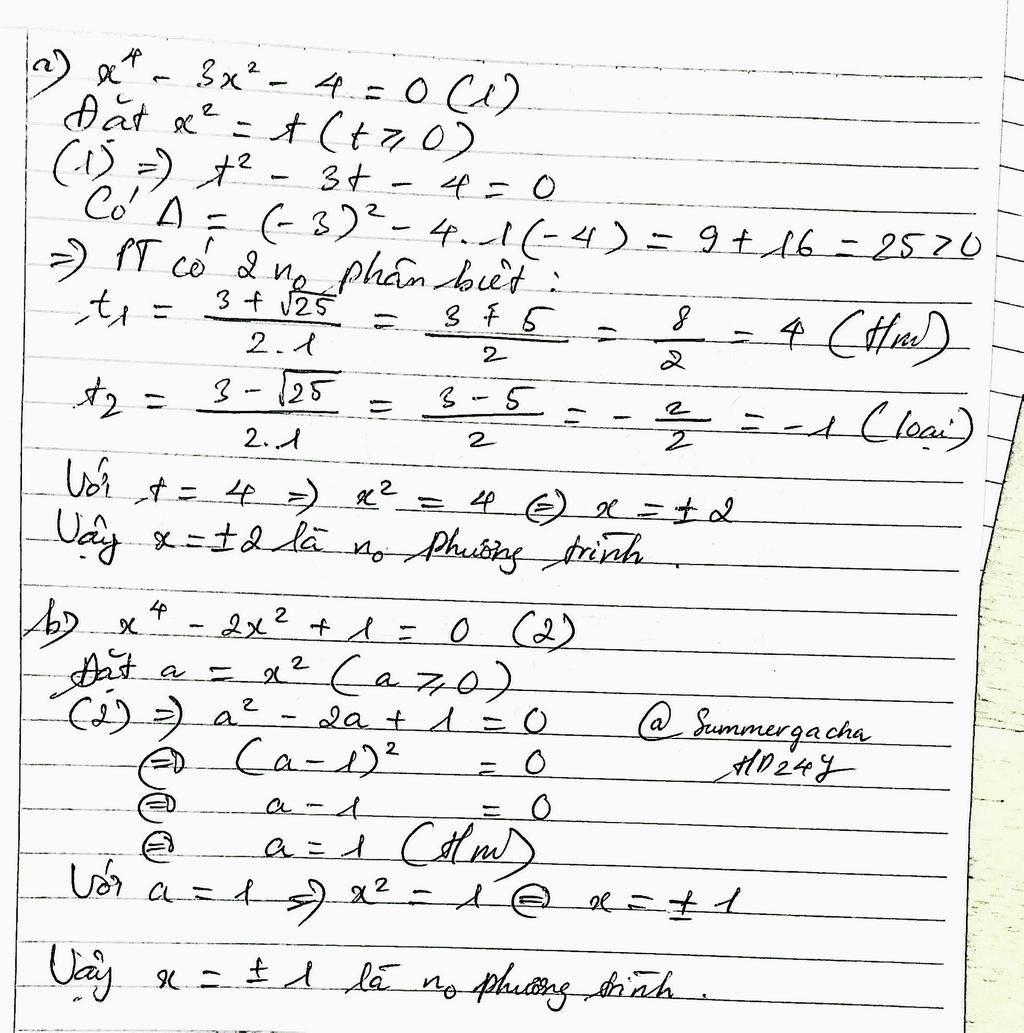 a) x⁴ - 3x² - 4 = 0 (1)
Đặt x² = t (t ⩾ 0)
(1) => t² - 3t - 4 = 0
Có Δ = (-3)² - 4.1(-4) = 9 + 16 = 25 > 0
=> PT có 2 n₀ phân biệt :
t₁ = (3 + √25)/(2.1) = (3 + 5)/2 = 8/2 = 4 (tm)
t₂ = (3 - √25)/(2.1) = (3 - 5)/2 = -2/2 = -1 (loại)
Với t = 4 => x² = 4 <=> x = ±2
Vậy x = ±2 là n₀ phương trình.
b) x⁴ - 2x² + 1 = 0 (2)
Đặt a = x² (a ⩾ 0)
(2) => a² - 2a + 1 = 0
@ Summergacha
HD24Y
<=> (a - 1)² = 0
<=> a - 1 = 0
<=> a = 1 (tm)
Với a = 1 => x² = 1 <=> x = ±1
Vậy x = ±1 là n₀ phương trình.